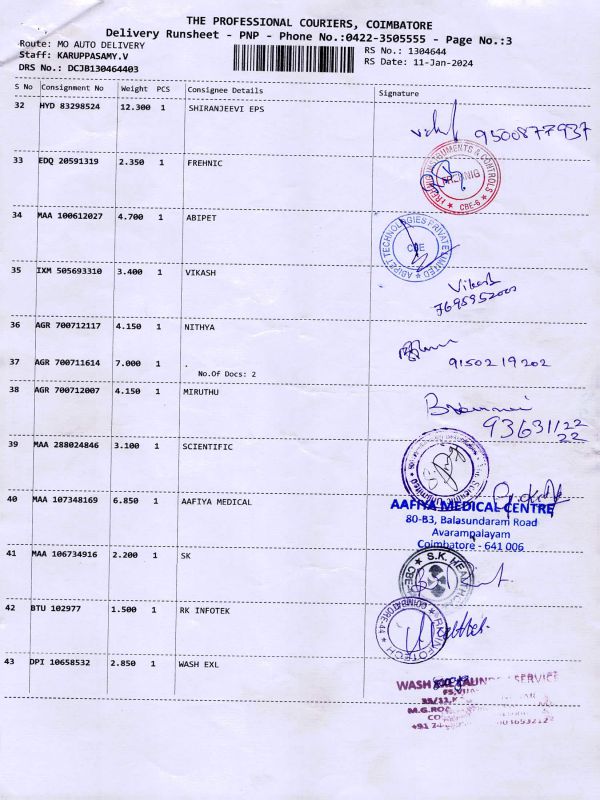 THE PROFESSIONAL COURIERS, COIMBATORE
Delivery Runsheet - PNP - Phone No.:0422-3505555 - Page No.:3
Route: MO AUTO DELIVERY
RS No.: 1304644
Staff: KARUPPASAMY.V
RS Date: 11-Jan-2024
DRS No.: DCJB130464403
S No Consignment No Weight PCS Consignee Details Signature
32 HYD 83298524 12.300 1 SHIRANJEEVI EPS
9500877937
33 EDQ 20591319 2.350 1 FREHNIC
INSTRUMENTS & CONTROLS
CBE-6
34 MAA 100612027 4.700 1 ABIPET
ABIPET TECHNOLOGIES PRIVATE LIMITED
CBE
35 IXM 505693310 3.400 1 VIKASH
Vikash
36 AGR 700712117 4.150 1 NITHYA
37 AGR 700711614 7.000 1 .
9150219202
No.Of Docs: 2
38 AGR 700712007 4.150 1 MIRUTHU
93631122
22
39 MAA 288024846 3.100 1 SCIENTIFIC
40 MAA 107348169 6.850 1 AAFIYA MEDICAL
AAFIYA MEDICAL CENTRE
80-B3, Balasundaram Road
Avarampalayam
Coimbatore - 641 006
41 MAA 106734916 2.200 1 SK
S.K.
42 BTU 102977 1.500 1 RK INFOTEK
COIMBATORE-44
43 DPI 10658532 2.850 1 WASH EXL
WASH
SERVICE
M.G.ROA